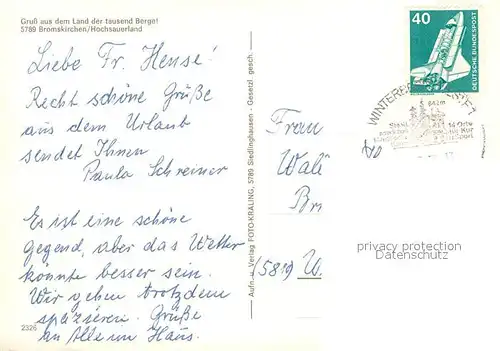 Gruß aus dem Land der tausend Berge!
5789 Bromskirchen/Hochsauerland
Liebe Fr. Hense!
Recht schöne Grüße
aus dem Urlaub
sendet Ihnen
Paula Schreiner
Es ist eine schöne
gegend, aber das Wetter
könnte besser sein.
Wir gehen trotzdem
spazieren. Grüße
an Alle im Haus.
2326
Aufn. u. Verlag FOTO-KRÄLING, 5789 Siedlinghausen - Gesetzl. gesch.
40
DEUTSCHE BUNDESPOST
842m
Frau
Br
(5819) W
privacy protection
Datenschutz